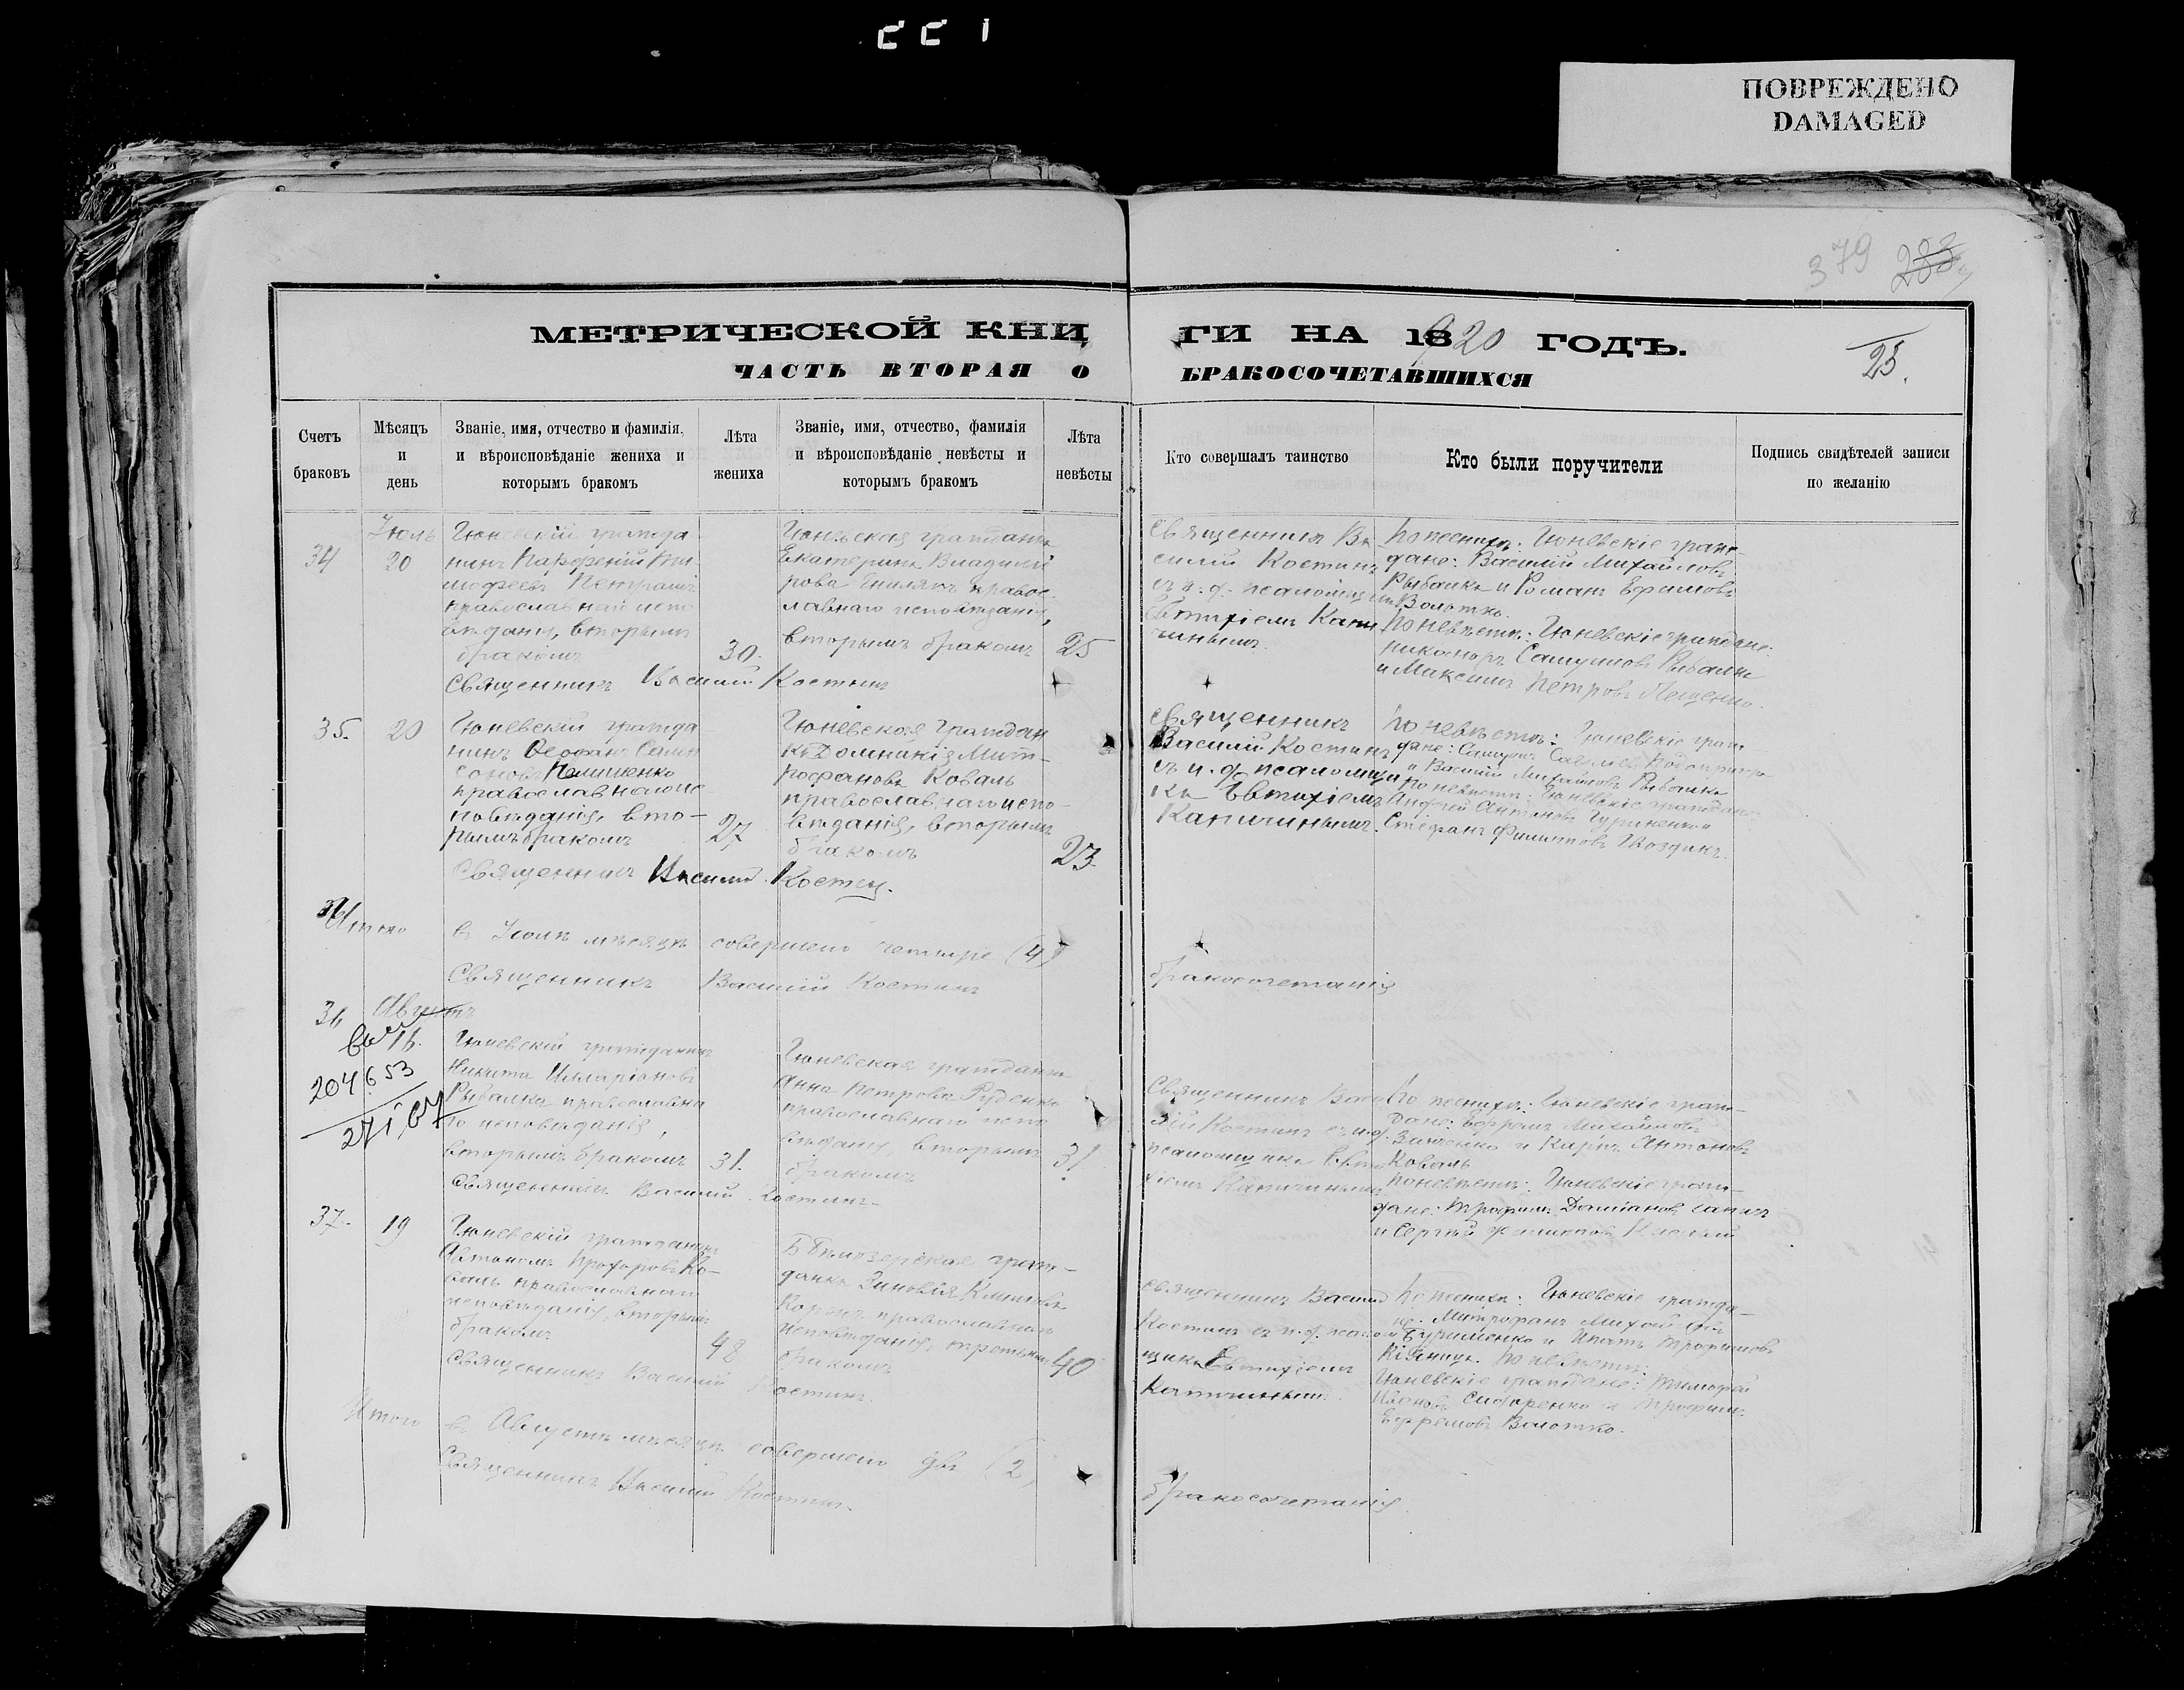 ПОВРЕЖДЕНО
DAMAGED
379 283
МЕТРИЧЕСКОЙ КНИ ГИ НА 1920 ГОДЪ.
25.
ЧАСТЬ ВТОРАЯ О БРАКОСОЧЕТАВШИХСЯ
Счетъ браковъ
Мѣсяцъ и день
Званіе, имя, отчество и фамилія,
и вѣроисповѣданіе жениха и
которымъ бракомъ
Лѣта жениха
Званіе, имя, отчество, фамилія
и вѣроисповѣданіе невѣсты и
которымъ бракомъ
Лѣта невѣсты
Кто совершалъ таинство
Кто были поручители
Подпись свидѣтелей записи
по желанію
34
Іюль
20
Тюневскій гражда-
нинъ Парфеній Ти-
мофеевъ
православнаго испо-
вѣданія, вторымъ
бракомъ
30.
Тюневская гражданка
Екатерина Владимі-
рова правос-
лавнаго исповѣданія,
вторымъ бракомъ
25
Священникъ Ва-
силій Костинъ
съ и. д. псаломщика
Евтихіемъ
По женихѣ: Тюневскіе граж-
дане: Василій Михайловъ
Рыбалка и Романъ Ефимовъ
Волотко.
По невѣстѣ: Тюневскіе граждане:
Никаноръ Рыбалка
и Максимъ Петровъ Лещенко.
Священникъ Василій Костинъ
35.
20
Тюневскій гражда-
нинъ
православнаго ис-
повѣданія, вто-
рымъ бракомъ
27
Тюневская граждан-
ка Домникія Мит-
рофанова Коваль
православнаго испо-
вѣданія, вторымъ
бракомъ
23.
Священникъ
Василій Костинъ
съ и. д. псаломщи-
ка Евтихіемъ
По невѣстѣ: Тюневскіе граж-
дане:
и Василій Михайловъ Рыбалка
по невѣстѣ: Тюневскіе граждане:
Андрей Антоновъ
Стефанъ Филиповъ Гвоздикъ.
Священникъ Василій Костинъ.
Итого
въ Іюлѣ мѣсяцѣ совершено четыре (4)
бракосочетанія
Священникъ Василій Костинъ
36
Августъ
16.
204653
Тюневскій гражданинъ
Никита Илларіоновъ
Рыбалка православна-
го исповѣданія,
вторымъ бракомъ
31.
Тюневская гражданка
Анна Петрова Руденко
православнаго испо-
вѣданія вторымъ
бракомъ
31
Священникъ Васи-
лій Костинъ съ и.д.
псаломщика Евти-
хіемъ
По женихѣ: Тюневскіе граж-
дане: Ефремъ Михайловъ
Зинченко и Карпъ Антоновъ
Коваль
По невѣстѣ: Тюневскіе граж-
дане: Трофимъ Даміановъ
и Сергѣй
Священникъ Василій Костинъ.
37.
19
Тюневскій гражданинъ
Автономъ Прохоровъ Ко-
валь православнаго
исповѣданія, вторымъ
бракомъ
48
Бѣлозерская граж-
данка Зиновія
православнаго
исповѣданія, третьимъ
бракомъ
40
Священникъ Василій
Костинъ съ и.д. псалом-
щика Евтихіемъ
По женихѣ: Тюневскіе гражда-
не: Митрофанъ Михайловъ
и Игнатъ Трофимовъ
По невѣстѣ:
Тюневскіе граждане: Тимофей
Ивановъ Сидоренко и Трофимъ
Ефремовъ Волотко.
Священникъ Василій Костинъ.
Итого
въ Августѣ мѣсяцѣ совершено два (2)
бракосочетанія
Священникъ Василій Костинъ.